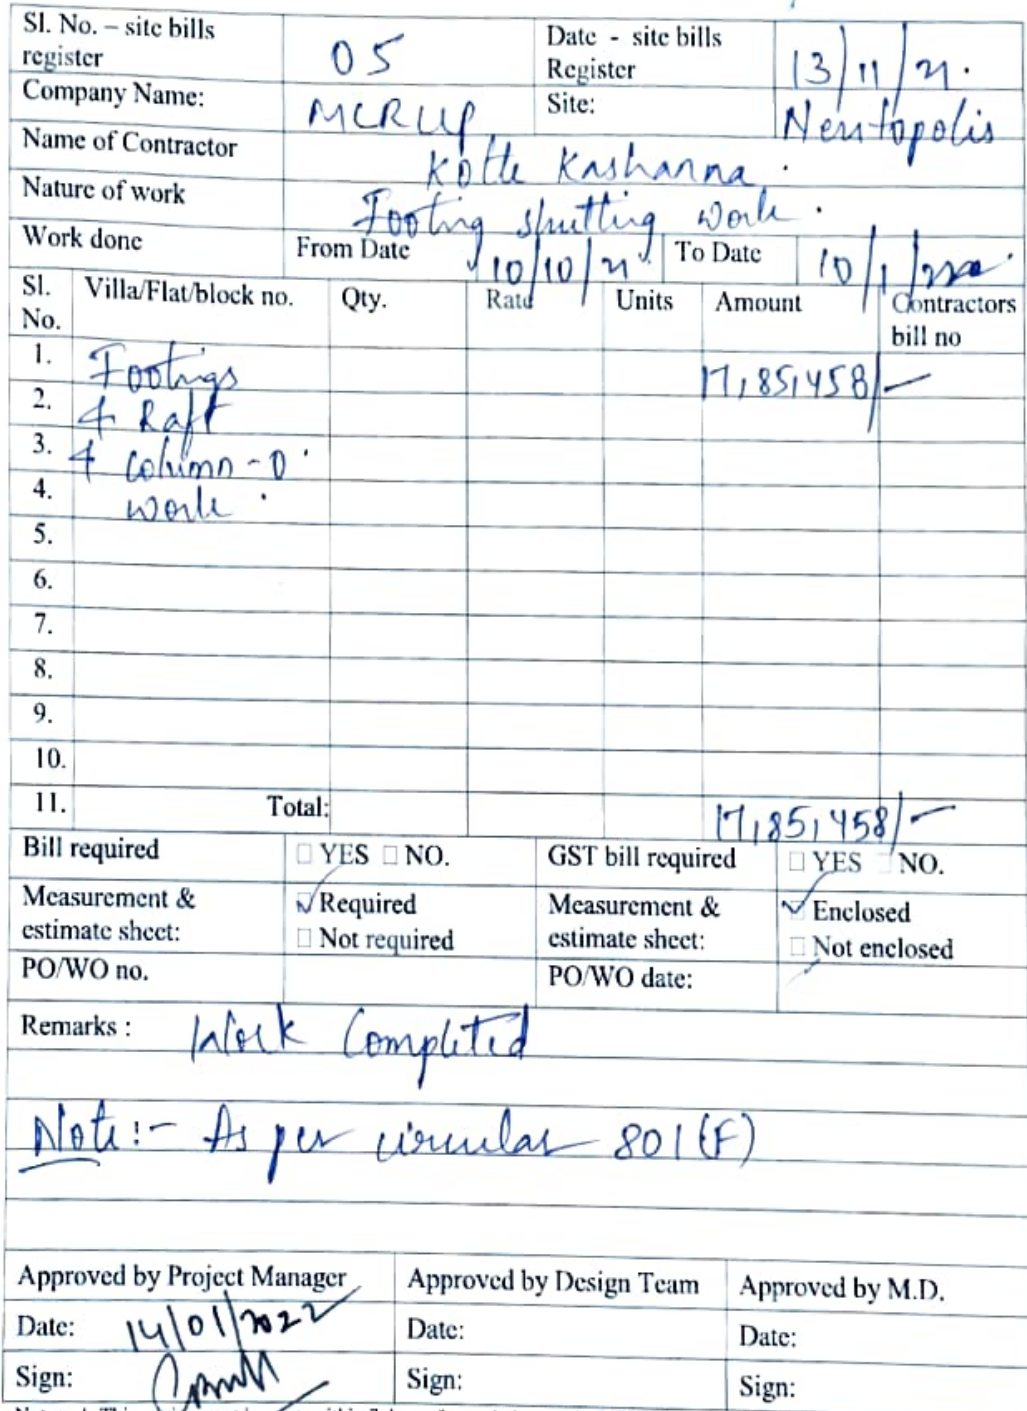 Sl. No. – site bills register 05 Date - site bills Register 13/11/21.
Company Name: MCRUP Site: Neutopolis
Name of Contractor Kotte Kashanna.
Nature of work Footing shutting work.
Work done From Date 10/10/21. To Date 10/1/22
Sl. No. Villa/Flat/block no. Qty. Rate Units Amount Contractors bill no
1. Footings 17,85,458/-
2. & Raft
3. & Column-0
4. work.
5.
6.
7.
8.
9.
10.
11. Total: 17,85,458/-
Bill required ☐ YES ☐ NO. GST bill required ☐ YES ☐ NO.
Measurement & estimate sheet: ☑ Required ☐ Not required Measurement & estimate sheet: ☑ Enclosed ☐ Not enclosed
PO/WO no. PO/WO date:
Remarks : Work Completed
Note:- As per circular 801(F)
Approved by Project Manager Approved by Design Team Approved by M.D.
Date: 14/01/2022 Date: Date:
Sign: Sign: Sign: